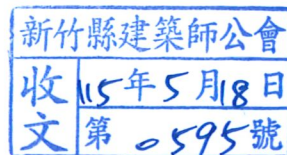 新竹縣建築師公會
收文
115年5月18日
第0595號